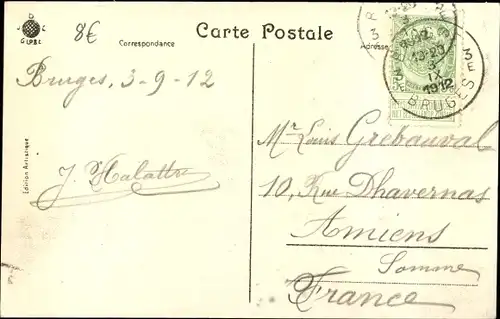 8€
Carte Postale
Correspondance
Adresse
Bruges, 3-9-12
J. Halattre
Mr Louis Grebauval
10, Rue Dhavernas
Amiens
Somme
France
Edition Artistique
BRUGES
3
IX
1912